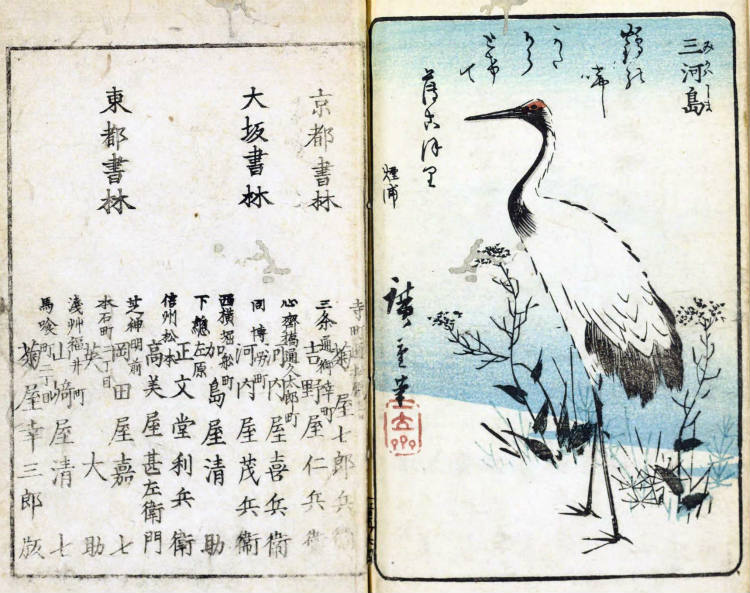 三河島
みかはしま
薄こほり
煙浦
廣重筆
京都書林
菊屋七郎兵衛
三条通御幸町
吉野屋仁兵衛
大坂書林
心齋橋通久太郎町
河内屋喜兵衛
同 博労町
河内屋茂兵衛
西横堀舩町
加島屋清助
下総左原
正文堂利兵衛
信州松本
高美屋甚左衛門
東都書林
芝神明前
岡田屋嘉七
本石町二丁目
英大助
淺艸福井町
山﨑屋清七
馬喰町二丁目
菊屋幸三郎版